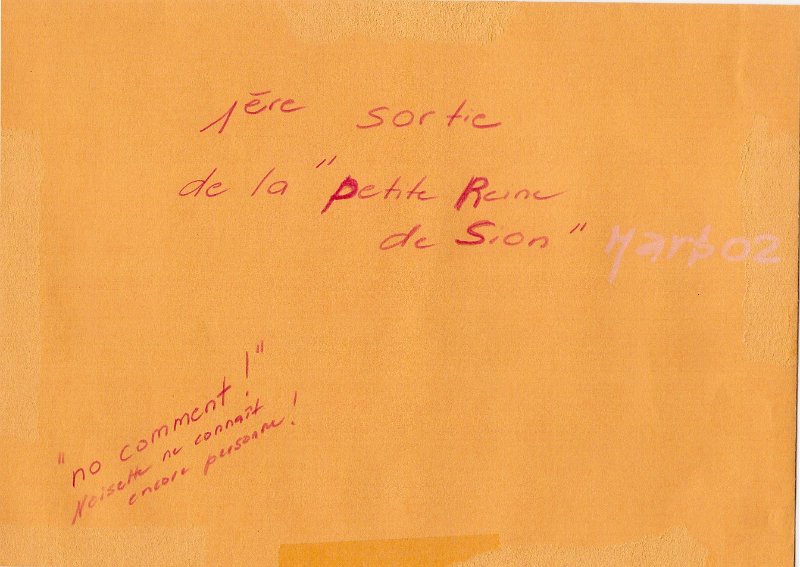 1ère sortie
de la "Petite Reine
de Sion" Mars 02
"no comment!"
Noisette ne connaît
encore personne!